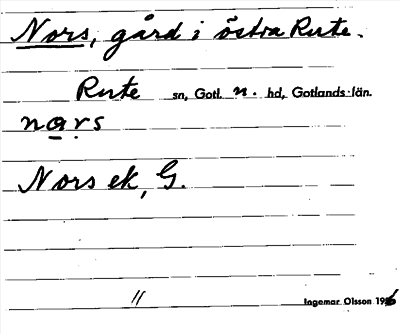 Nors, gård i östra Rute.
Rute sn, Gotl. n. hd, Gotlands län.
nạrs
Nors ek, G.
11
Ingemar Olsson 1926